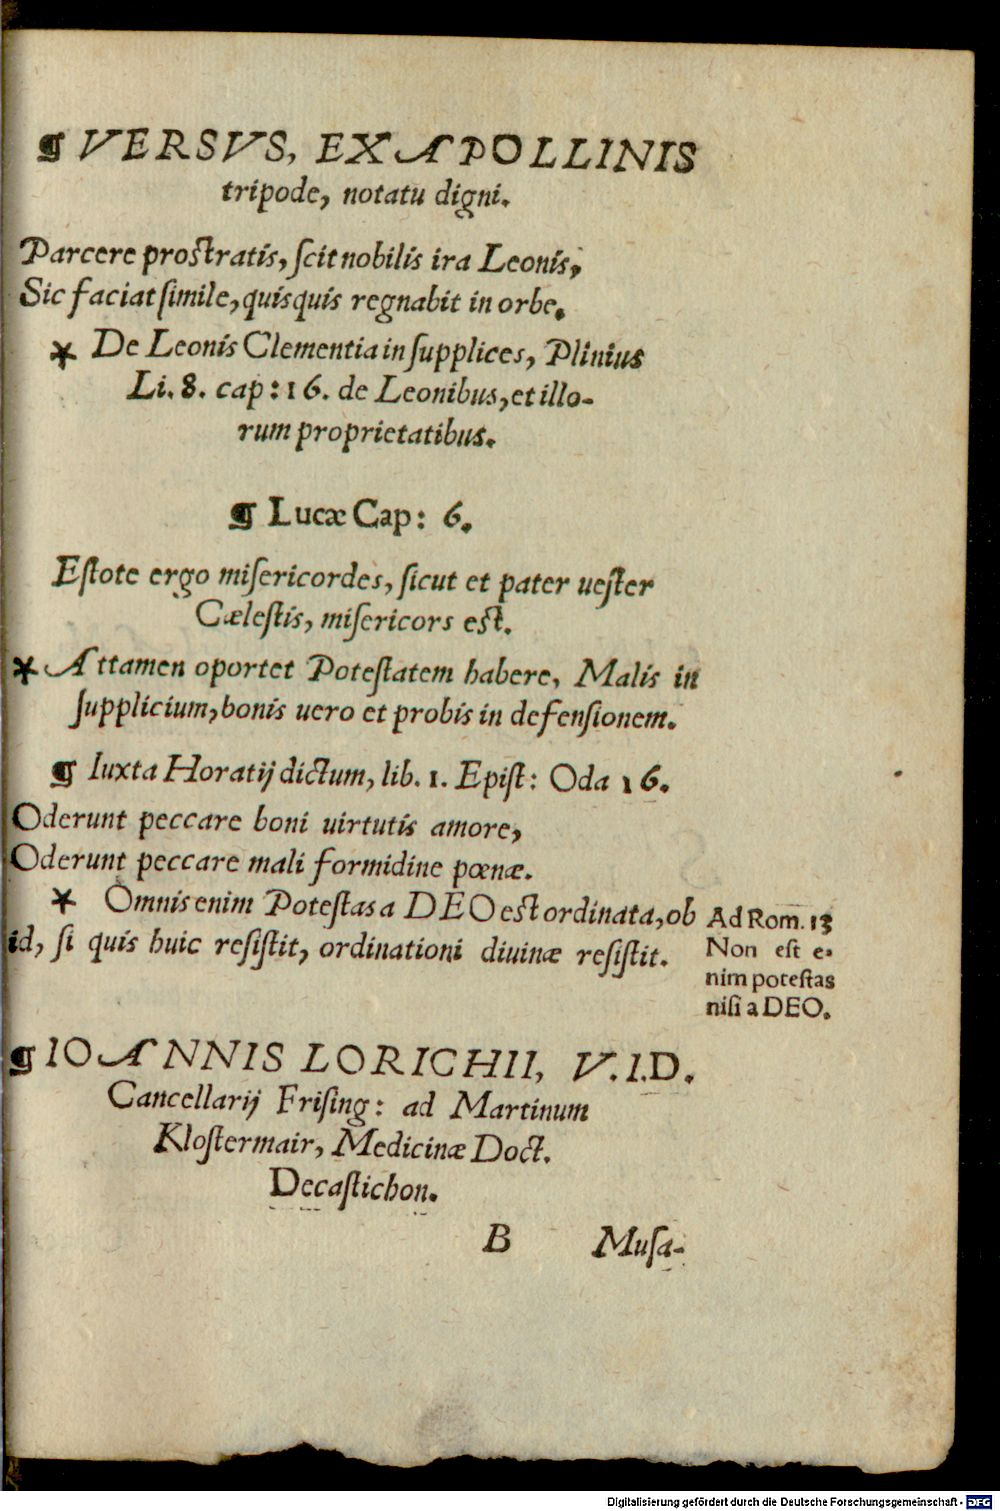 ¶ VERSVS, EX APOLLINIS
tripode, notatu digni.
Parcere prostratis, scit nobilis ira Leonis,
Sic faciat simile, quisquis regnabit in orbe.
* De Leonis Clementia in supplices, Plinius
Li. 8. cap: 16. de Leonibus, et illo-
rum proprietatibus.
¶ Lucæ Cap: 6.
Estote ergo misericordes, sicut et pater uester
Cælestis, misericors est.
* Attamen oportet Potestatem habere, Malis in
supplicium, bonis uero et probis in defensionem.
¶ Iuxta Horatij dictum, lib. 1. Epist: Oda 16.
Oderunt peccare boni uirtutis amore,
Oderunt peccare mali formidine pœnæ.
* Omnis enim Potestas a DEO est ordinata, ob
id, si quis huic resistit, ordinationi diuinæ resistit.
Ad Rom. 13
Non est e-
nim potestas
nisi a DEO.
¶ IOANNIS LORICHII, V.I.D.
Cancellarij Frising: ad Martinum
Klostermair, Medicinæ Doct.
Decastichon.
B Musa-
Digitalisierung gefördert durch die Deutsche Forschungsgemeinschaft - DFG